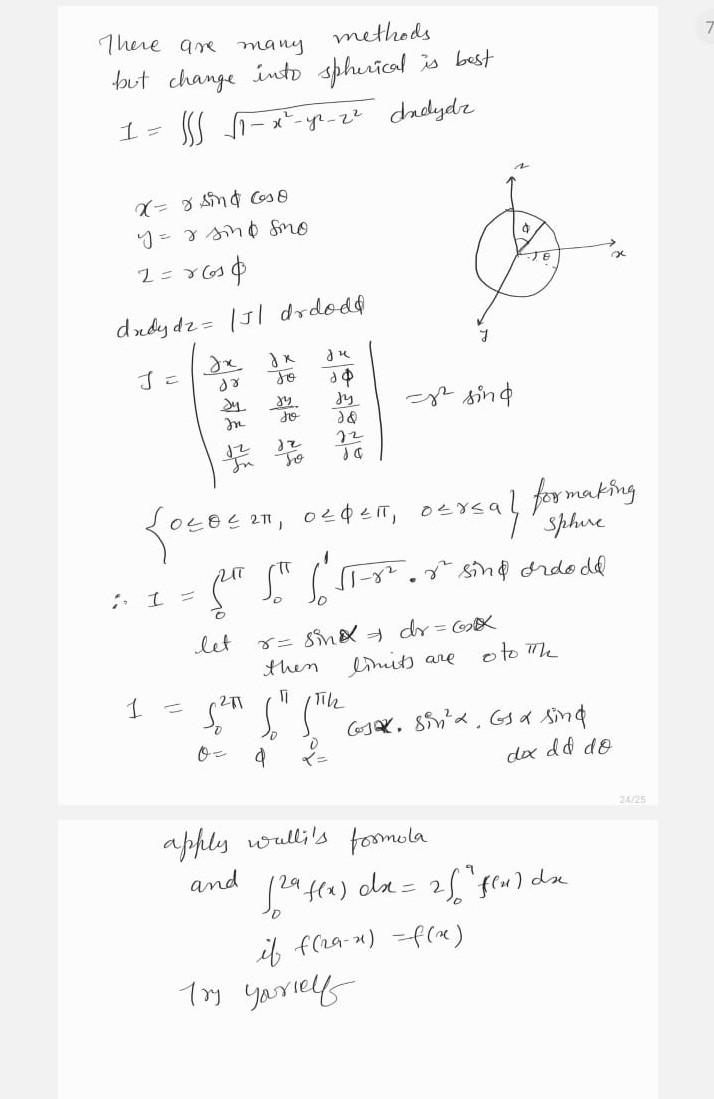 There are many methods
but change into spherical is best
I = ∭ √1-x²-y²-z² dxdydz
z
x = r sinϕ cosθ
y = r sinϕ sinθ
z = r cosϕ
ϕ
θ
x
y
dxdydz = |J| drdθdϕ
J = | ∂x/∂r ∂x/∂θ ∂x/∂ϕ |
| ∂y/∂r ∂y/∂θ ∂y/∂ϕ | = r² sinϕ
| ∂z/∂r ∂z/∂θ ∂z/∂ϕ |
{0≤θ≤2π, 0≤ϕ≤π, 0≤r≤a} for making
sphere
∴ I = ∫₀^2π ∫₀^π ∫₀^1 √1-r² . r² sinϕ drdθdϕ
let r = sinα ⇒ dr = cosα
then limits are 0 to π/2
I = ∫₀^2π ∫₀^π ∫₀^π/2 cosα. sin²α. cosα sinϕ
θ= ϕ α= dα dϕ dθ
24/25
apply walli's formola
and ∫₀^2a f(x) dx = 2∫₀^a f(x) dx
if f(2a-x) = f(x)
Try yourself
7